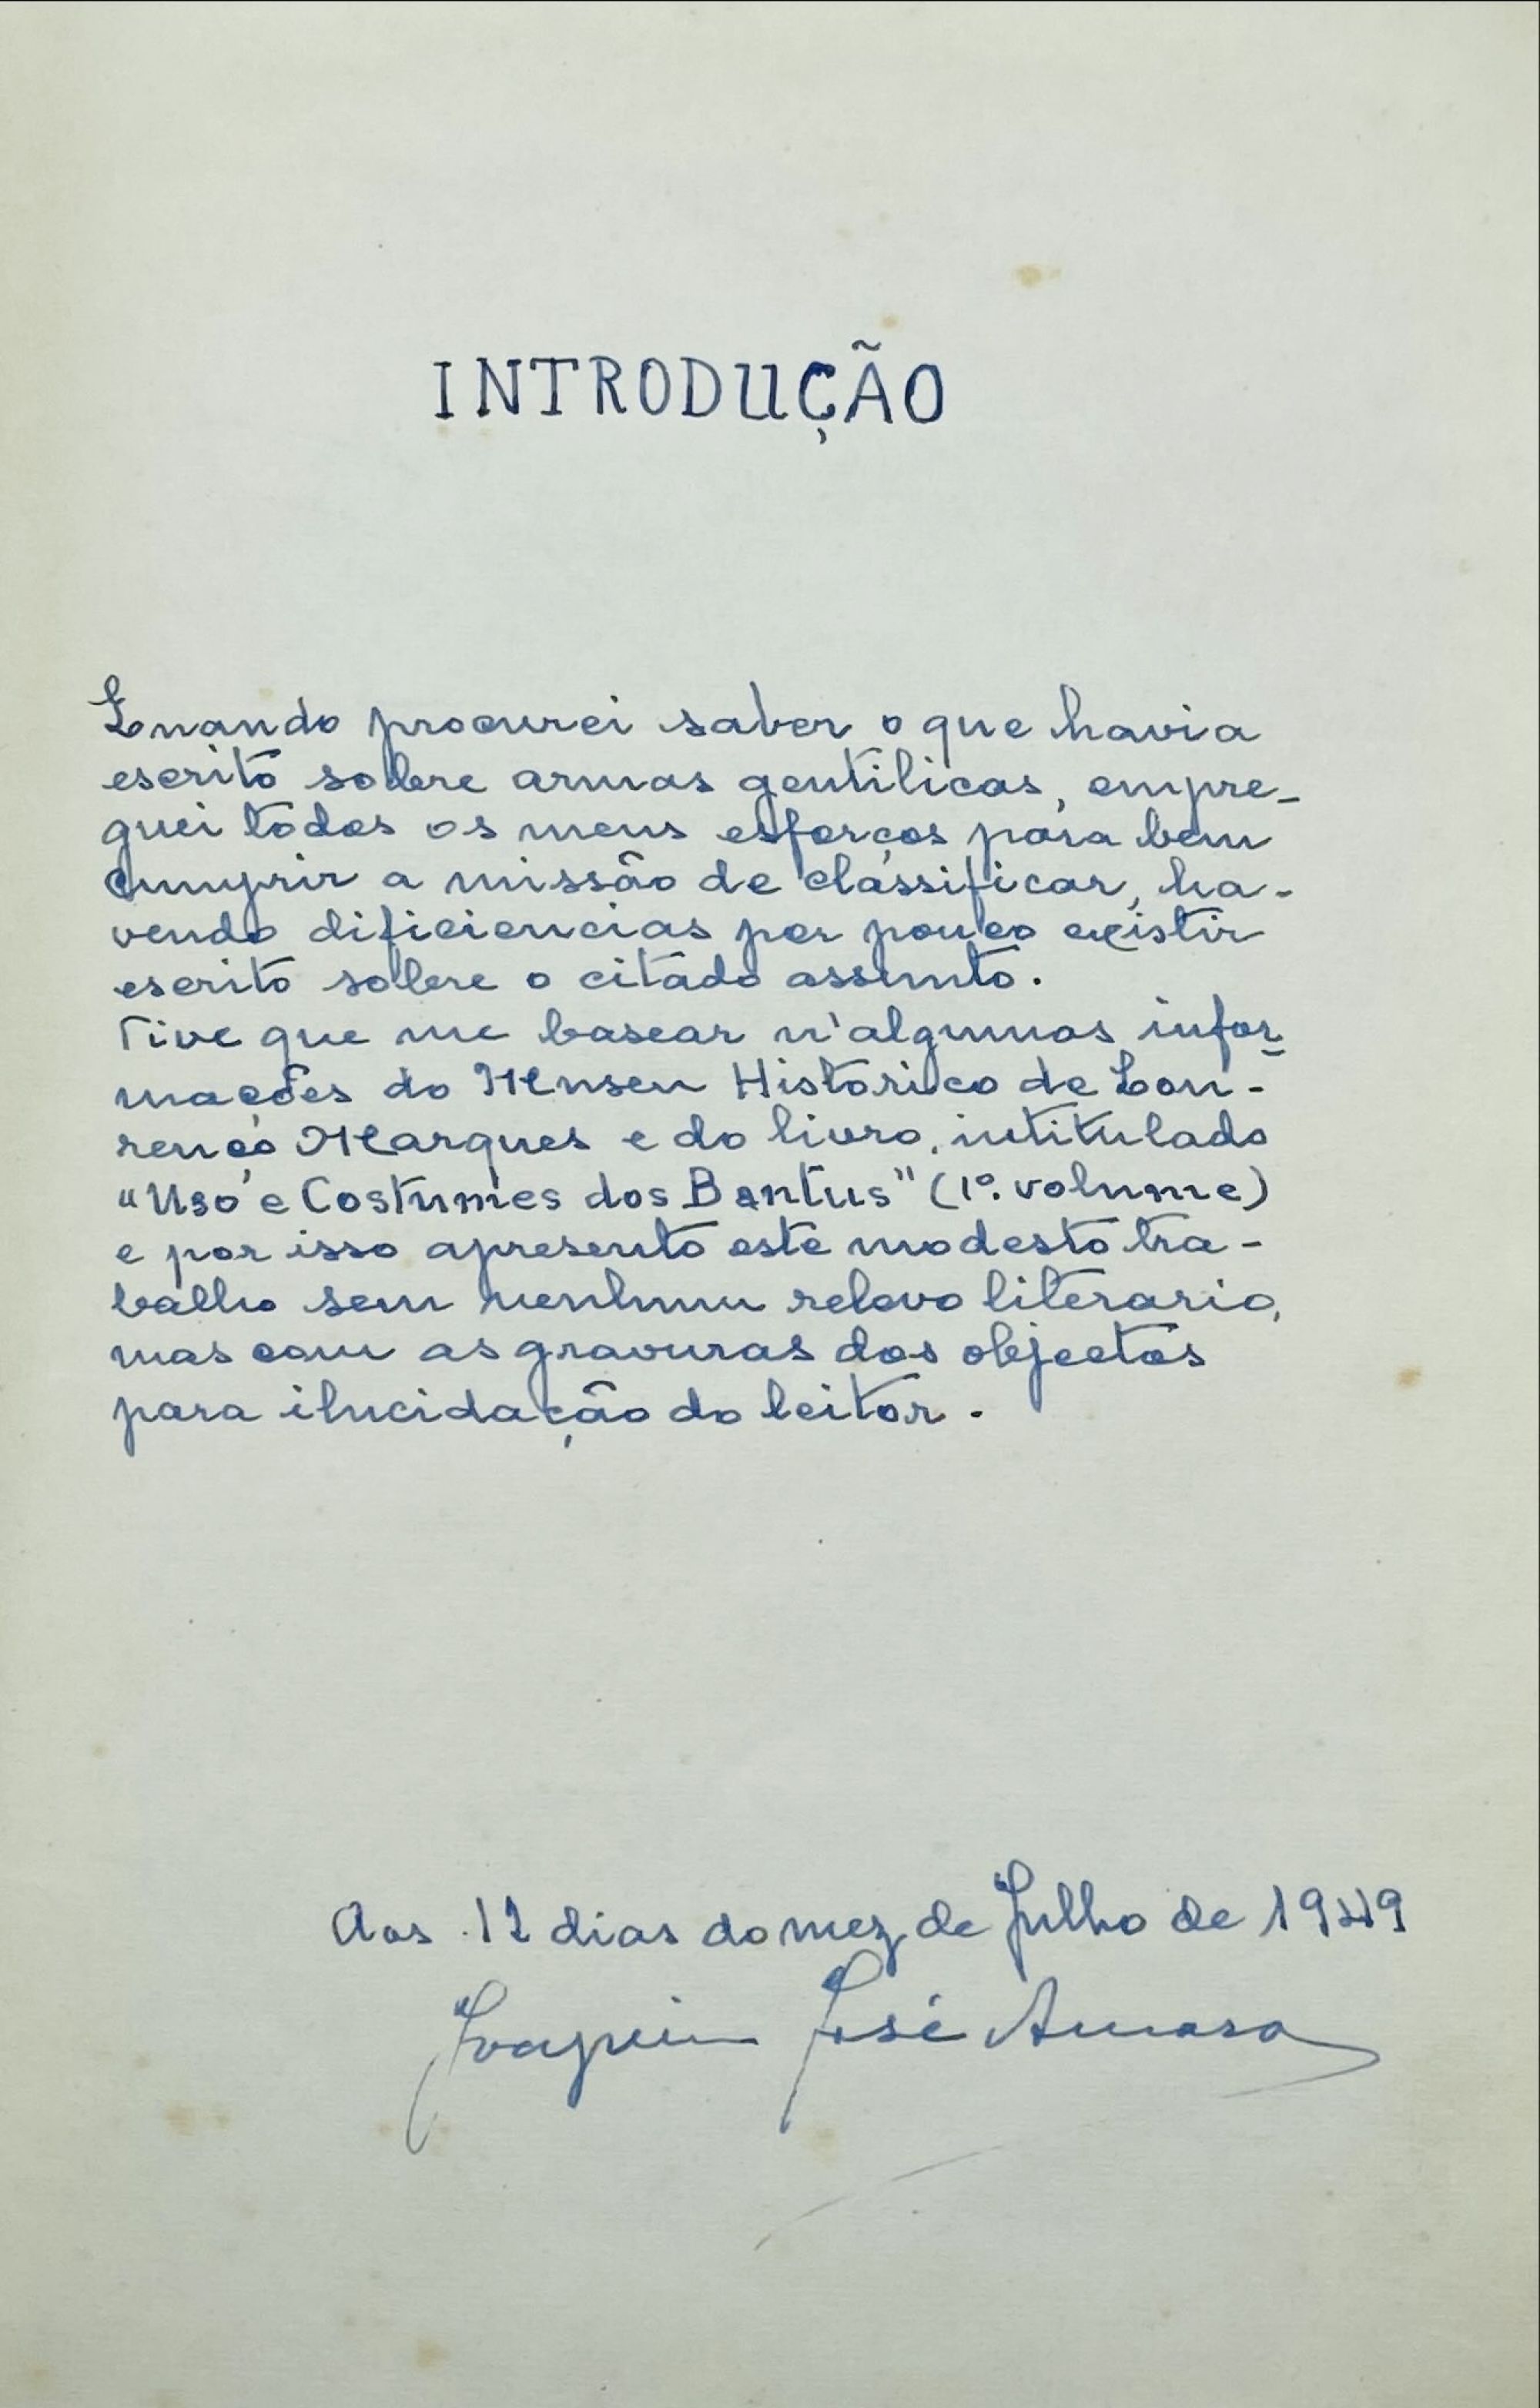 INTRODUÇÃO
Quando procurei saber o que havia
escrito sobre armas gentilicas, empre-
guei todos os meus esforços para bem
cumprir a missão de classificar, ha-
vendo dificiencias por pouco existir
escrito sobre o citado assunto.
Tive que me basear n'algumas infor-
mações do Museu Historico de Lou-
renço Marques e do livro, intitulado
"Uso e Costumes dos Bantus" (1º. volume)
e por isso apresento este modesto tra-
balho sem nenhum relevo literario,
mas com as gravuras dos objectos
para ilucidação do leitor.
Aos 12 dias do mez de Julho de 1949
Joaquim José